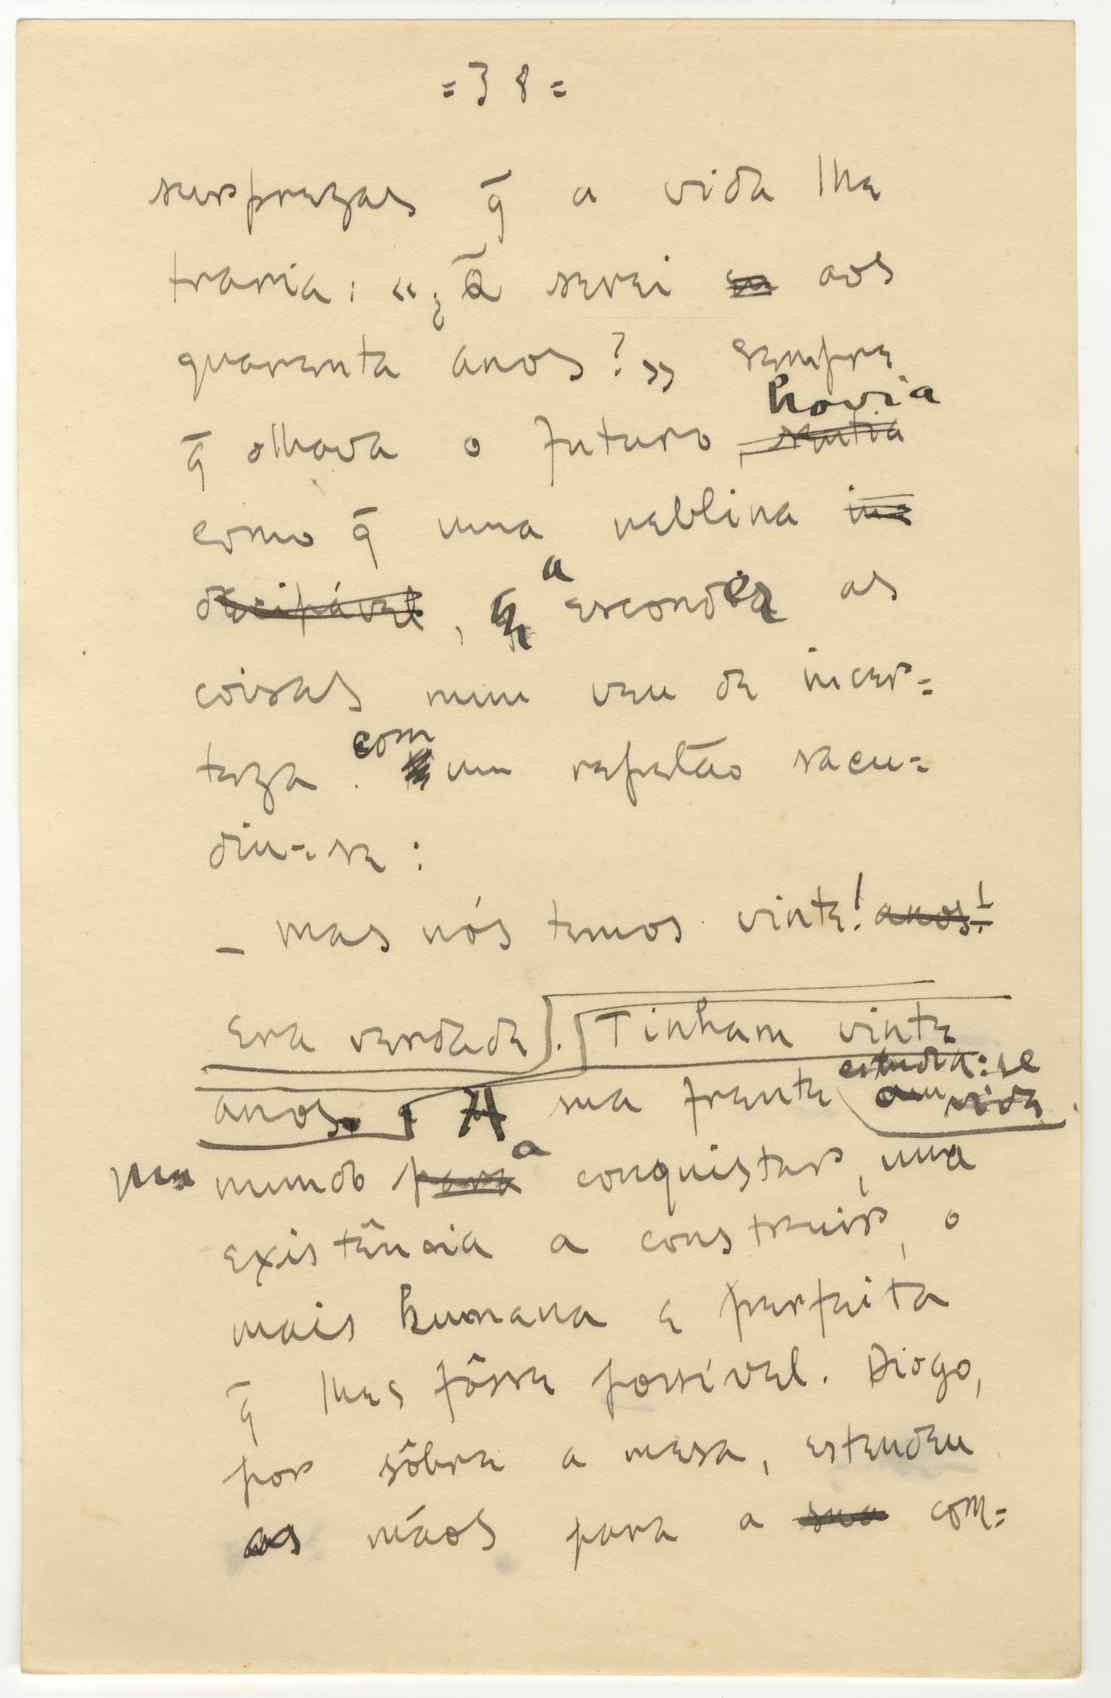 = 38 =
surprezas q̄ a vida lhe
traria: «¿Q̄ serei eu aos
quarenta anos?» Sempre
havia
q̄ olhava o futuro, sentia
como q̄ uma neblina in-
decipável, q̄ a escondia as
coisas num veu de incer=
teza. com um repelão sacu=
diu-se:
– Mas nós temos vinte! anos!
Era verdade. Tinham vinte
estendia-se
anos. A sua frente vida
um mundo para a conquistar, uma
existência a construir, o
mais humana e perfeita
q̄ lhes fôsse possível. Diogo,
por sôbre a mesa, estendeu
as mãos para a sua com=